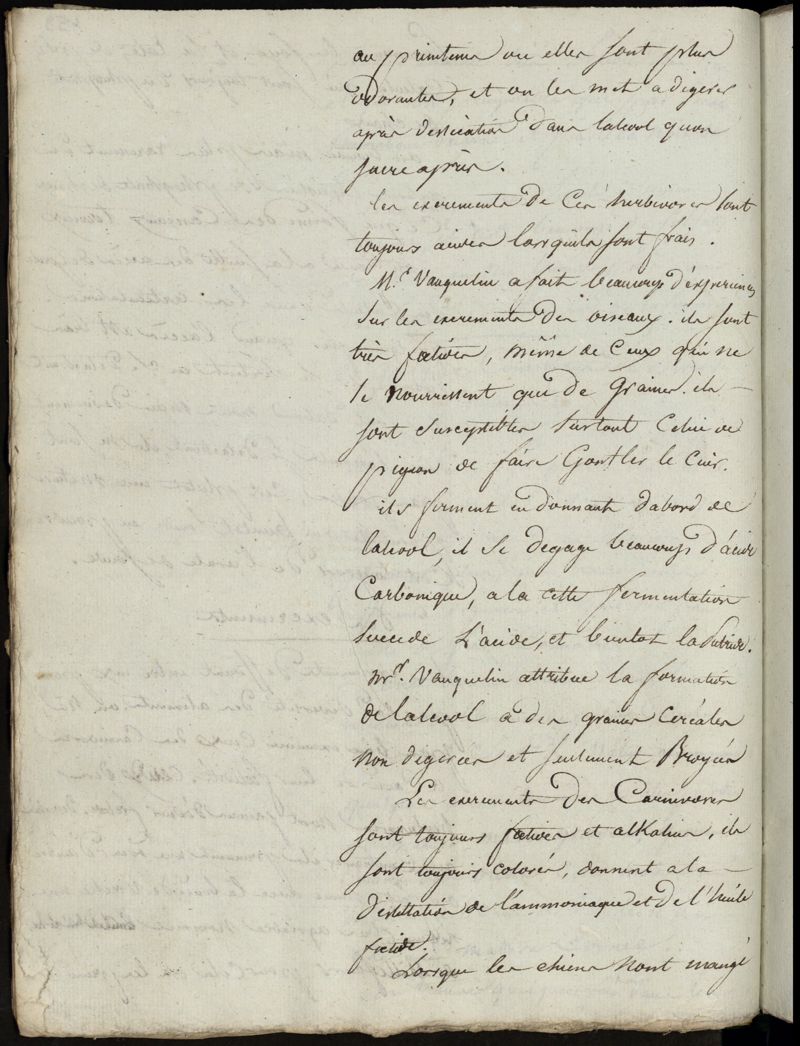 au printems ou elles sont plus
odorantes, et on les met a digerer
après dessication dans lalcool quon
sucre après.
les excrements de ces herbivores sont
toujours acides lorsquils sont frais.
Mr. Vauquelin a fait beaucoup d'experiences
sur les excrements des oiseaux. ils sont
très fœtides, même de ceux qui ne
se nourrissent que de graines. ils
sont susceptibles surtout celui de
pigeon de faire gonfler le cuir.
ils ferment en donnant dabord de
lalcool, il se degage beaucoup d'acide
Carbonique, a la cette fermentation
succede L'acide, et bientot la Putride.
Mr. Vauquelin attribue la formation
de lalcool à des graines Céréales
non digerées et seulement Broyées
Les excrements des Carnivores
sont toujours fœtides et alkalins, ils
sont toujours colorés, donnent a la
distillation de l'ammoniaque et de l'huile
fœtide.
Lorsque les chiens nont mangé